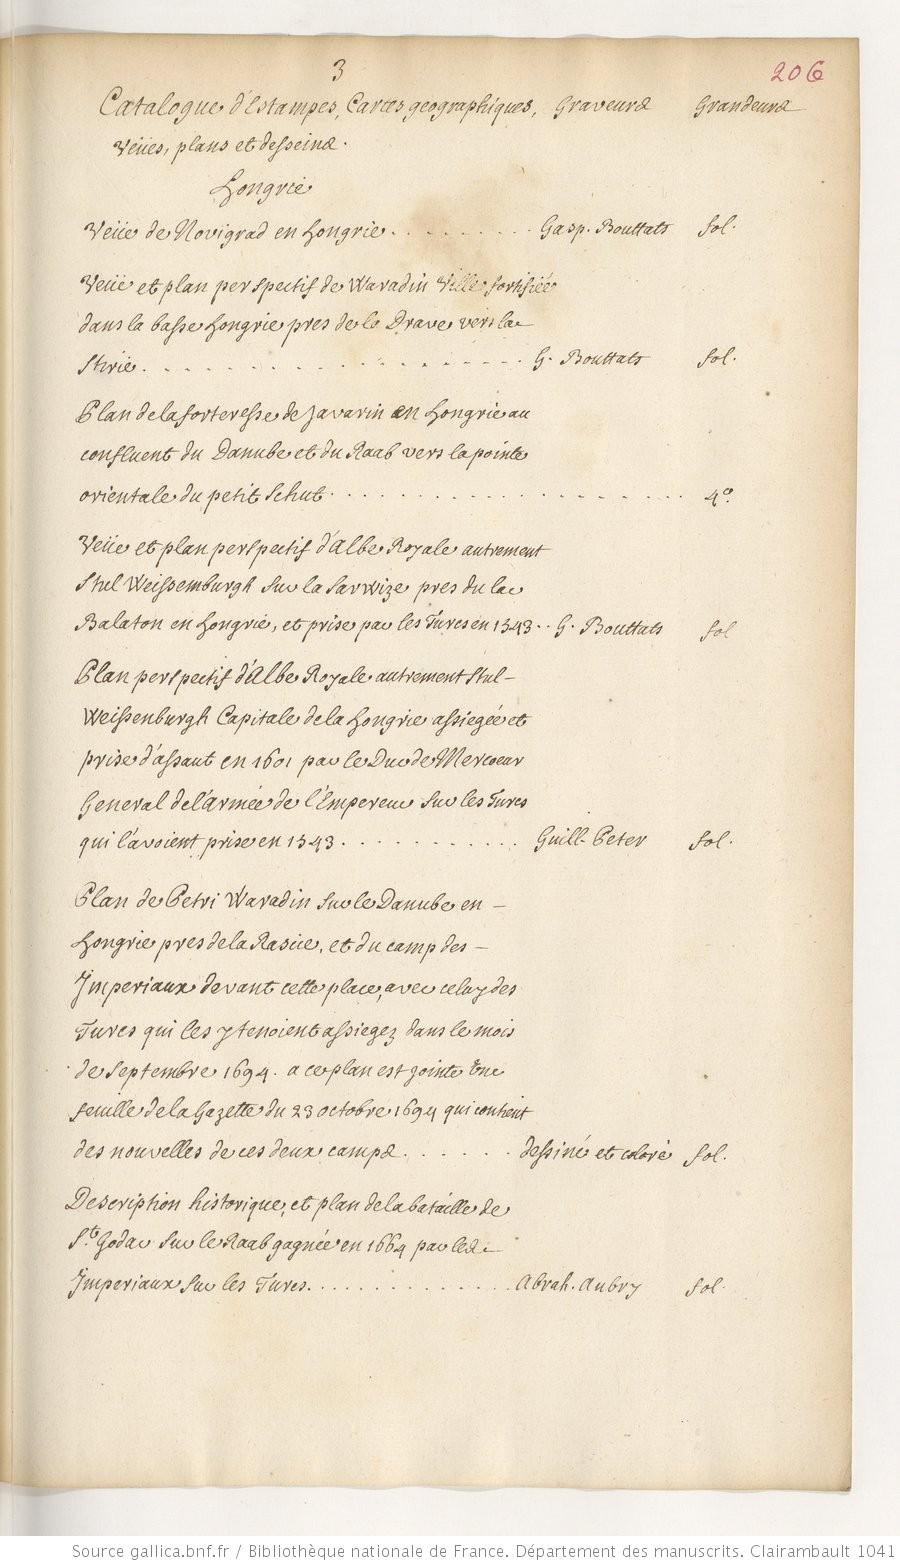 3
206
Catalogue d'Estampes, Cartes geographiques, Graveurs Grandeurs
Veües, plans et desseins.
Hongrie
Veüe de Novigrad en Hongrie . . . . . . . . . Gasp. Bouttats fol.
Veüe et plan perspectif de Waradin Ville fortifiée
dans la basse Hongrie pres de la Drave vers la
Stirie . . . . . . . . . . . . . . . . G. Bouttats fol.
Plan de la forteresse de Javarin en Hongrie au
confluent du Danube et du Raab vers la pointe
orientale du petit Schut . . . . . . . . . . . . . . . . 4º.
Veüe et plan perspectif d'Albe Royale autrement
Stul Weissemburgh sur la Sarwize pres du lac
Balaton en Hongrie, et prise par les Turcs en 1543 . . G. Bouttats fol
Plan perspectif d'Albe Royale autrement Stul-
Weissenburgh Capitale de la Hongrie assiegée et
prise d'assaut en 1601 par le Duc de Mercoeur
General de l'armée de l'Empereur sur les Turcs
qui l'avoient prise en 1543 . . . . . . . . . . . Guill. Peter fol.
Plan de Petri Waradin sur le Danube en -
Hongrie pres de la Rascie, et du camp des -
Imperiaux devant cette place, avec celuy des
Turcs qui les y tenoient assiegez dans le mois
de Septembre 1694. a ce plan est jointe une
feuille de la Gazette du 23 octobre 1694 qui contient
des nouvelles de ces deux camps . . . . . . dessiné et coloré fol.
Description historique, et plan de la bataille de
St. Godar sur le Raab gagnée en 1664 par les
Imperiaux sur les Turcs . . . . . . . . . . . . Abrah. Aubry fol.
Source gallica.bnf.fr / Bibliothèque nationale de France. Département des manuscrits. Clairambault 1041